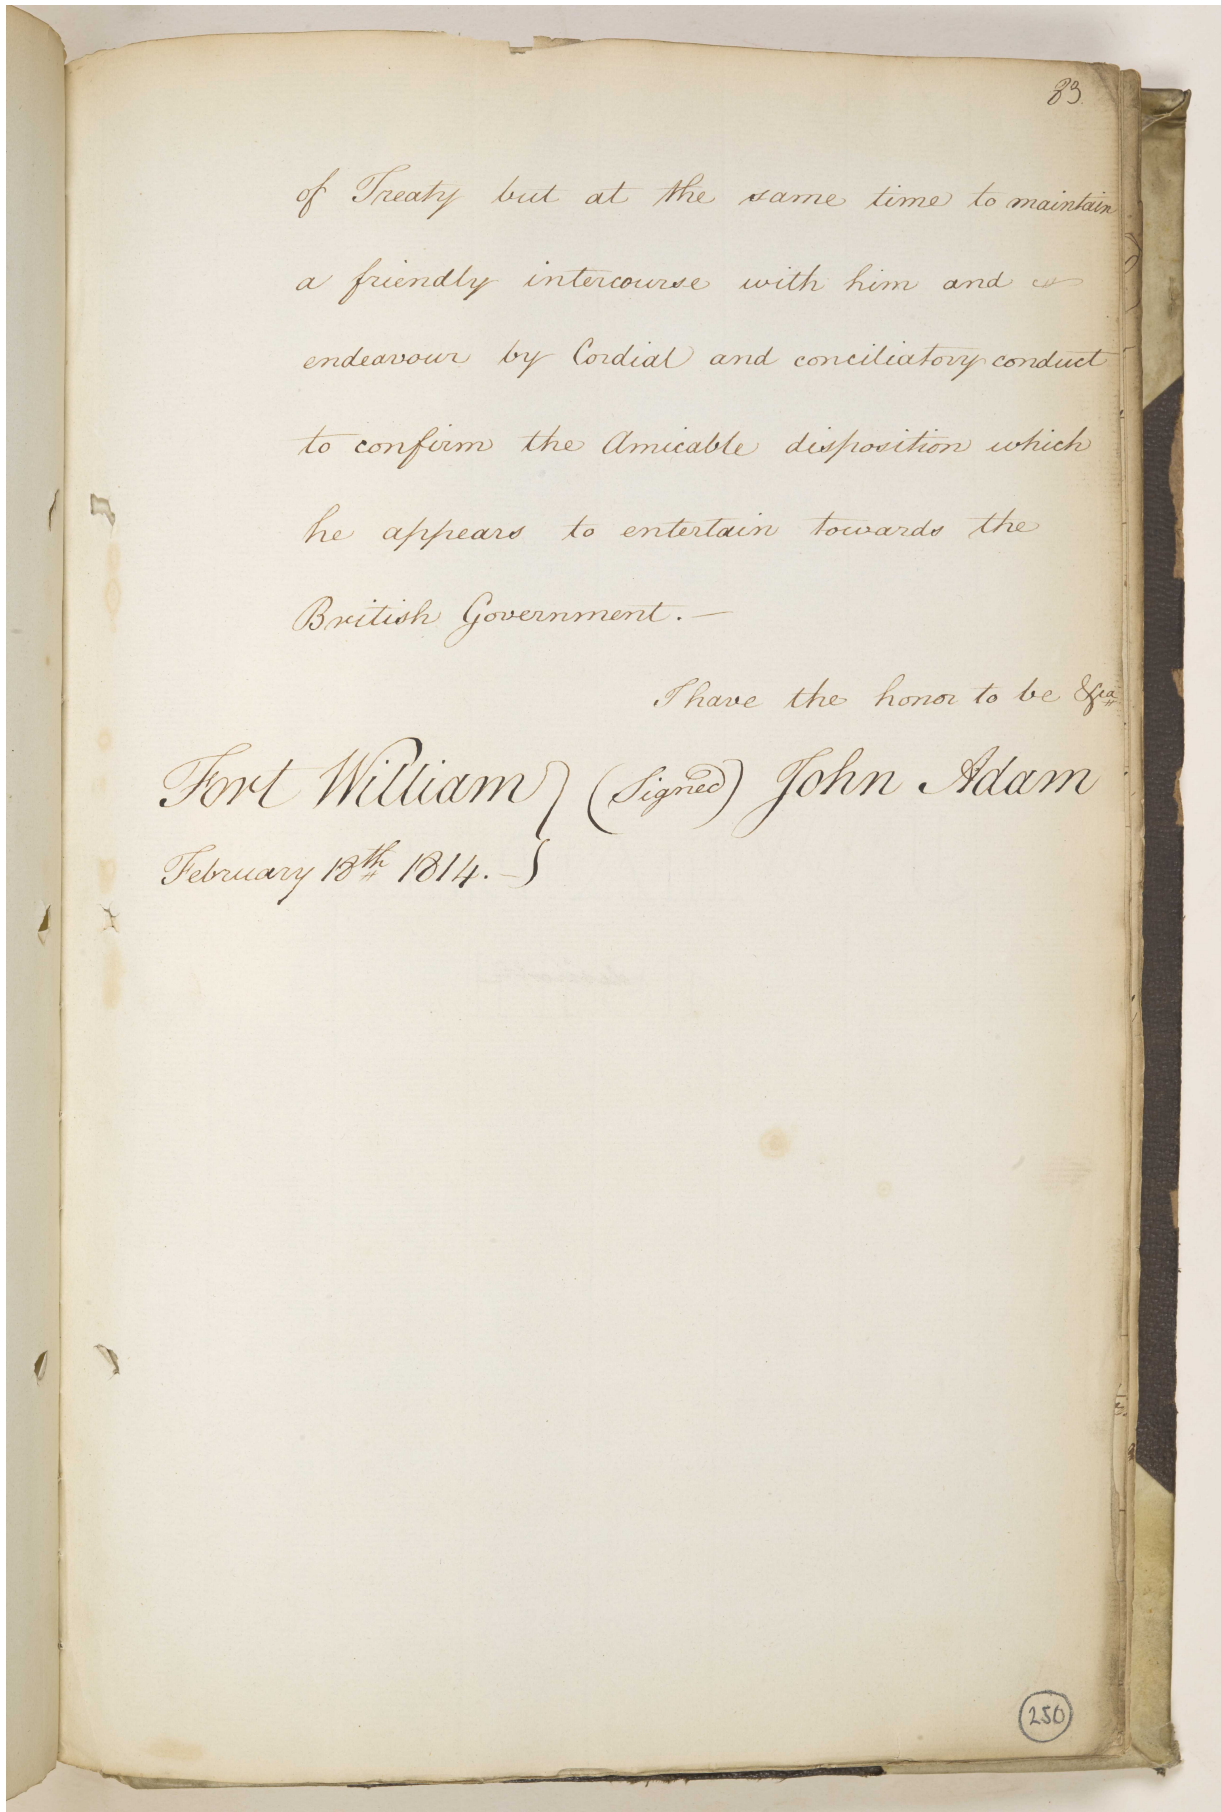 83.
of Treaty but at the same time to maintain
a friendly intercourse with him and
endeavour by Cordial and conciliatory conduct
to confirm the Amicable disposition which
he appears to entertain towards the
British Government. —
I have the honor to be &ca
Fort William } (Signed) John Adam
February 18th 1814. — }
250